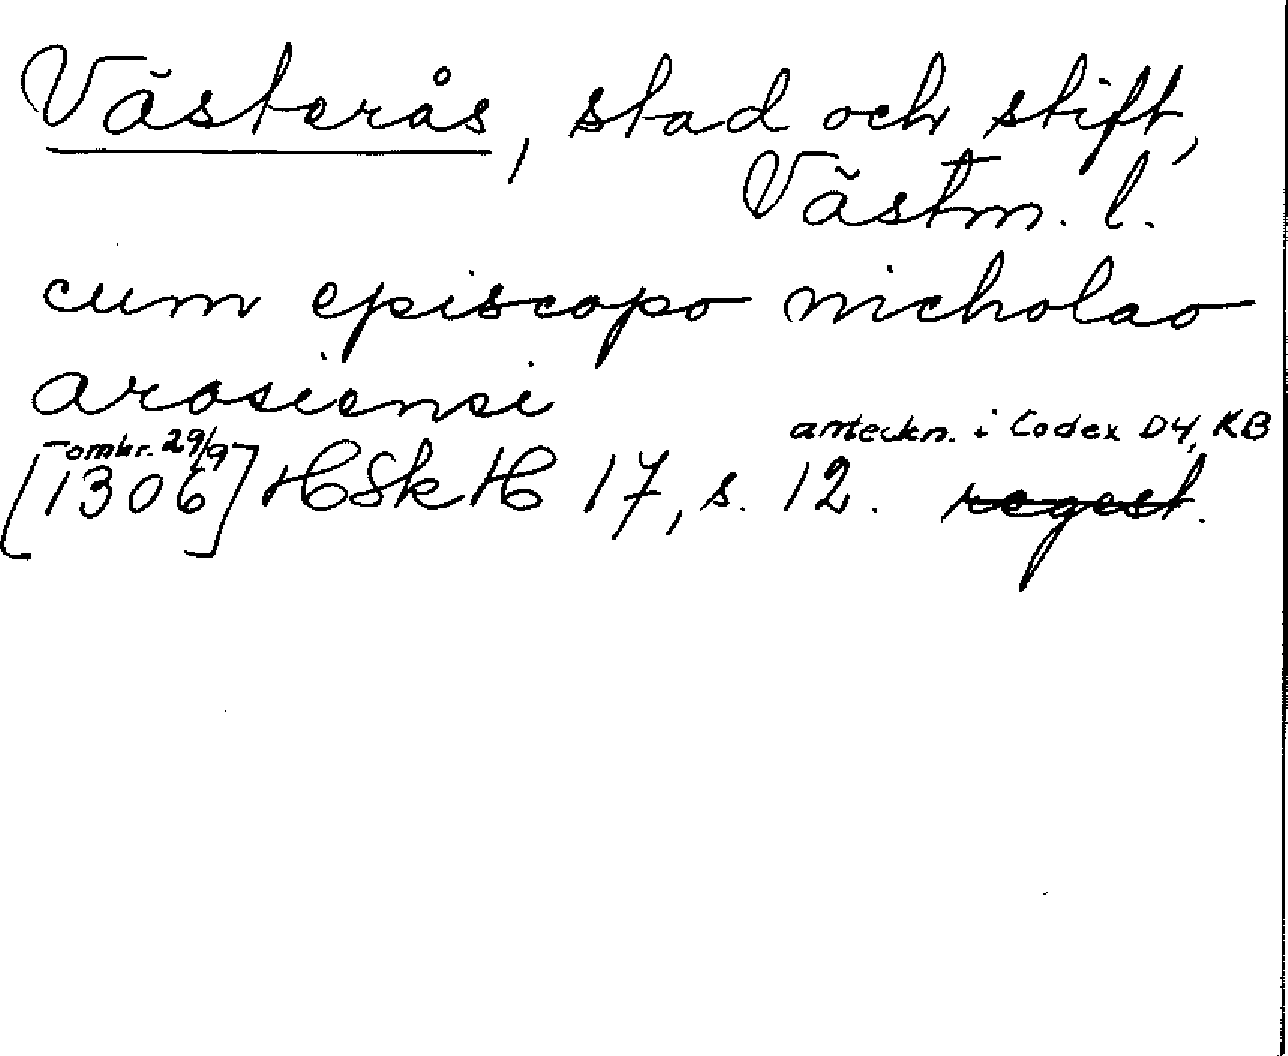 Västerås, stad och stift,
Västm. l.
cum episcopo nicholao
arosiensi
anteckn. i Codex D4, KB
omkr. 29/9
[1306] HSkH 17, s. 12. regest.